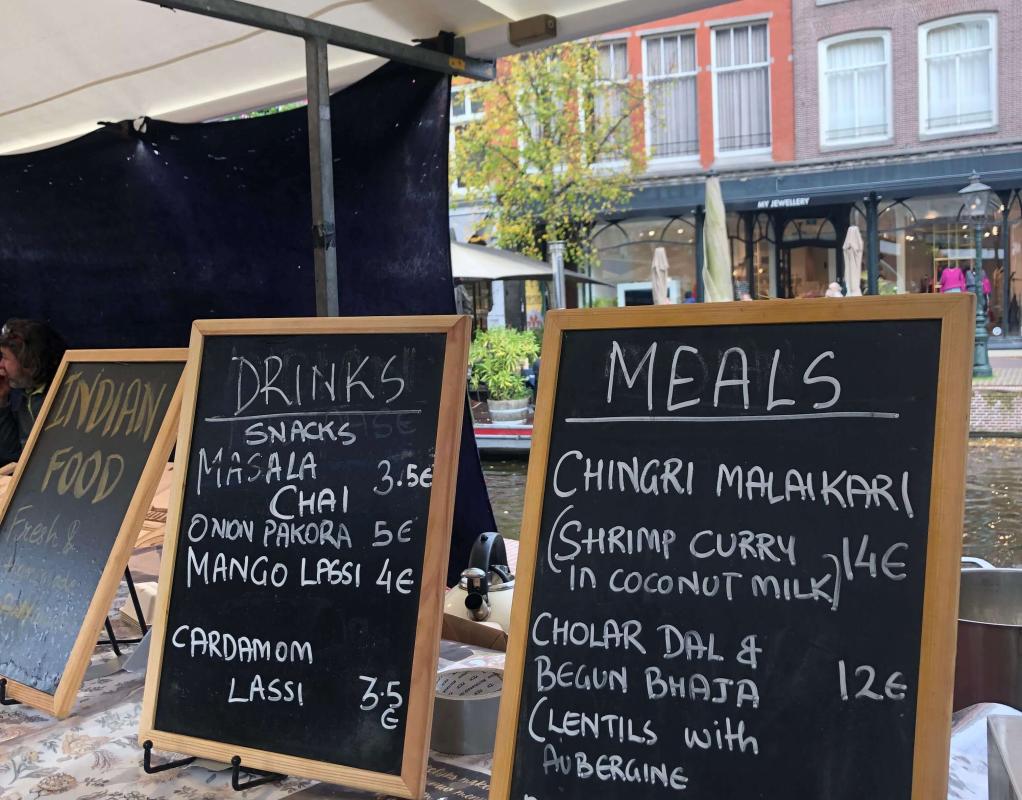 MY JEWELLERY
INDIAN
FOOD
Fresh &
DRINKS
SNACKS
MASALA 3.5€
CHAI
ONION PAKORA 5€
MANGO LASSI 4€
CARDAMOM
LASSI 3.5
€
MEALS
CHINGRI MALAIKARI
(SHRIMP CURRY
IN COCONUT MILK) 14€
CHOLAR DAL &
BEGUN BHAJA 12€
(LENTILS with
AUBERGINE